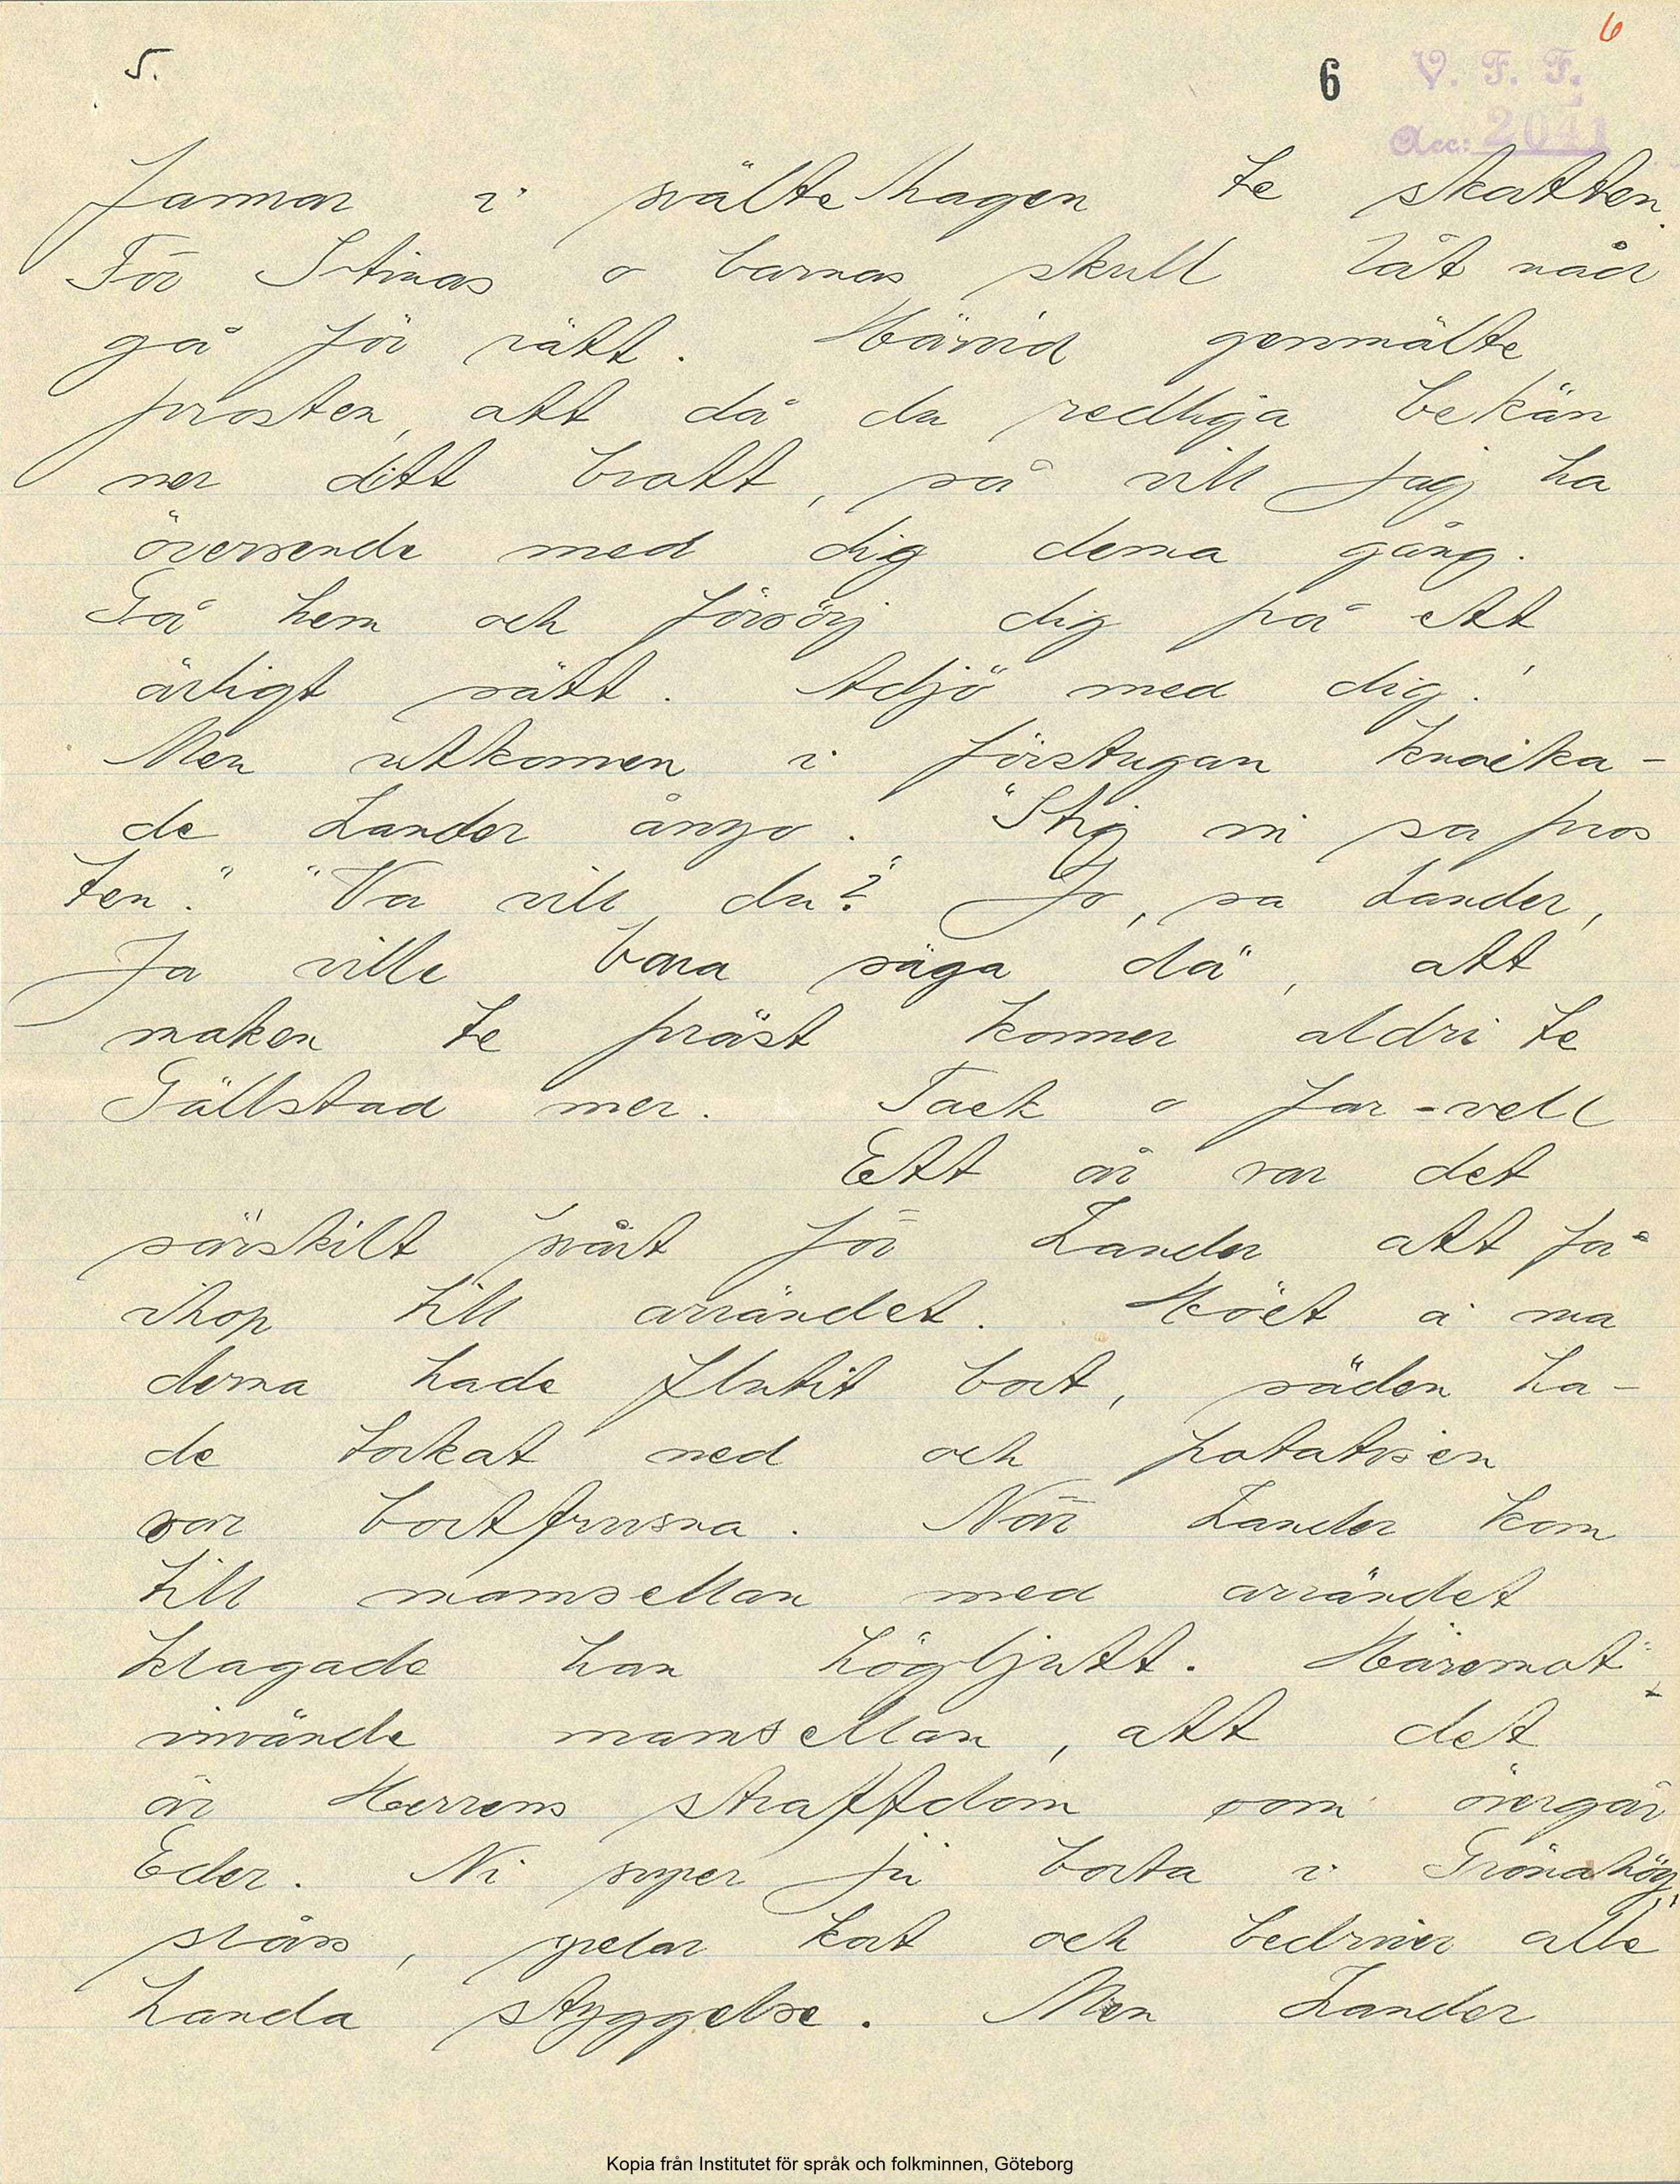 6
5.
6 V. F. F.
Acc: 2041
Jannar i svälte hagen te skatten.
För Stinas o barnas skull låt nåd
gå för rätt. Härvid genmälte
prosten, att då du redliga bekän
ner ditt brott, så vill jag ha
överseende med dig denna gång.
Gå hem och försörj dig på ett
ärligt sätt. Adjö med dig!
Men utkommen i förstugan knacka-
de Lander ånyo. "Stig in sa pros
ten." "Va vill du?" Jo, sa Lander,
Ja ville bara säga dä, att
maken te präst kommer aldri te
Gällstad mer. Tack o far-vell
Ett år var det
särskilt svårt för Lander att få
ihop till arrändet. Höet å ma
derna hade flutit bort, säden ha-
de torkat ned och potatisen
var bortfrusna. När Lander kom
till mamsellan med arrändet
klagade han högljutt. Häremot
invände mamsellan, att det
är Herrens straffdom som övergår
Eder. Ni super ju borta i Grönahög,
slåss, spelar kort och bedriver alle
handa styggelse. Men Lander
Kopia från Institutet för språk och folkminnen, Göteborg